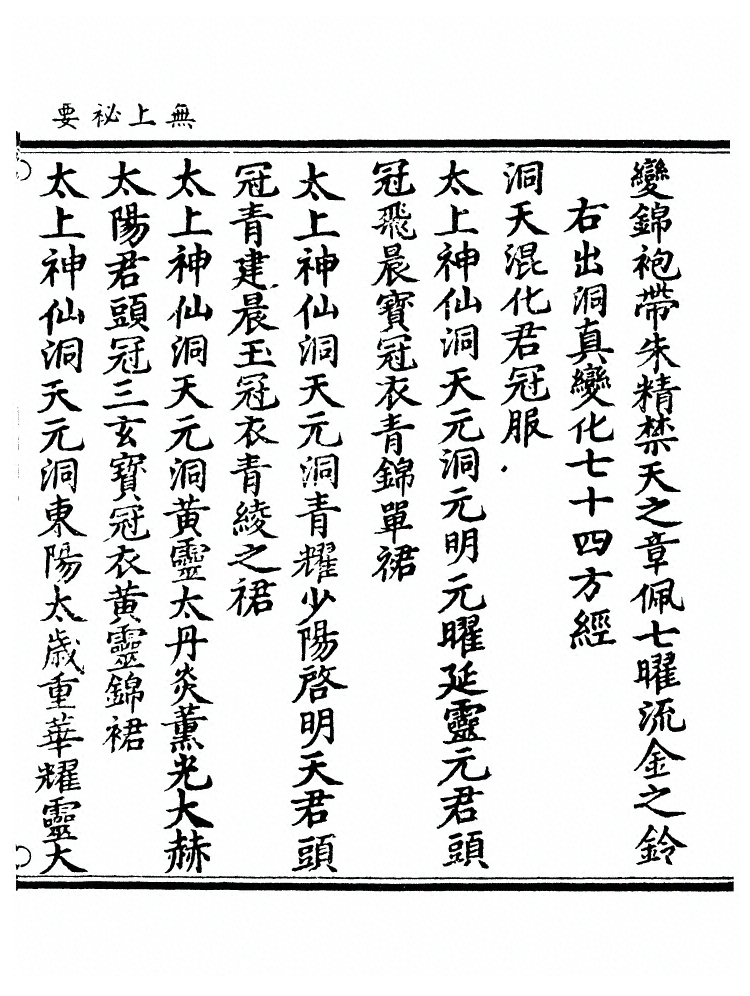 無上祕要
變錦袍帶朱精禁天之章佩七曜流金之鈴
右出洞真變化七十四方經
洞天混化君冠服
太上神仙洞天元洞元明元曜延靈元君頭
冠飛晨寶冠衣青錦單裙
太上神仙洞天元洞青耀少陽啓明天君頭
冠青建晨玉冠衣青綾之裙
太上神仙洞天元洞黃靈太丹炎薰光大赫
太陽君頭冠三玄寶冠衣黃靈錦裙
太上神仙洞天元洞東陽太歲重華耀靈大